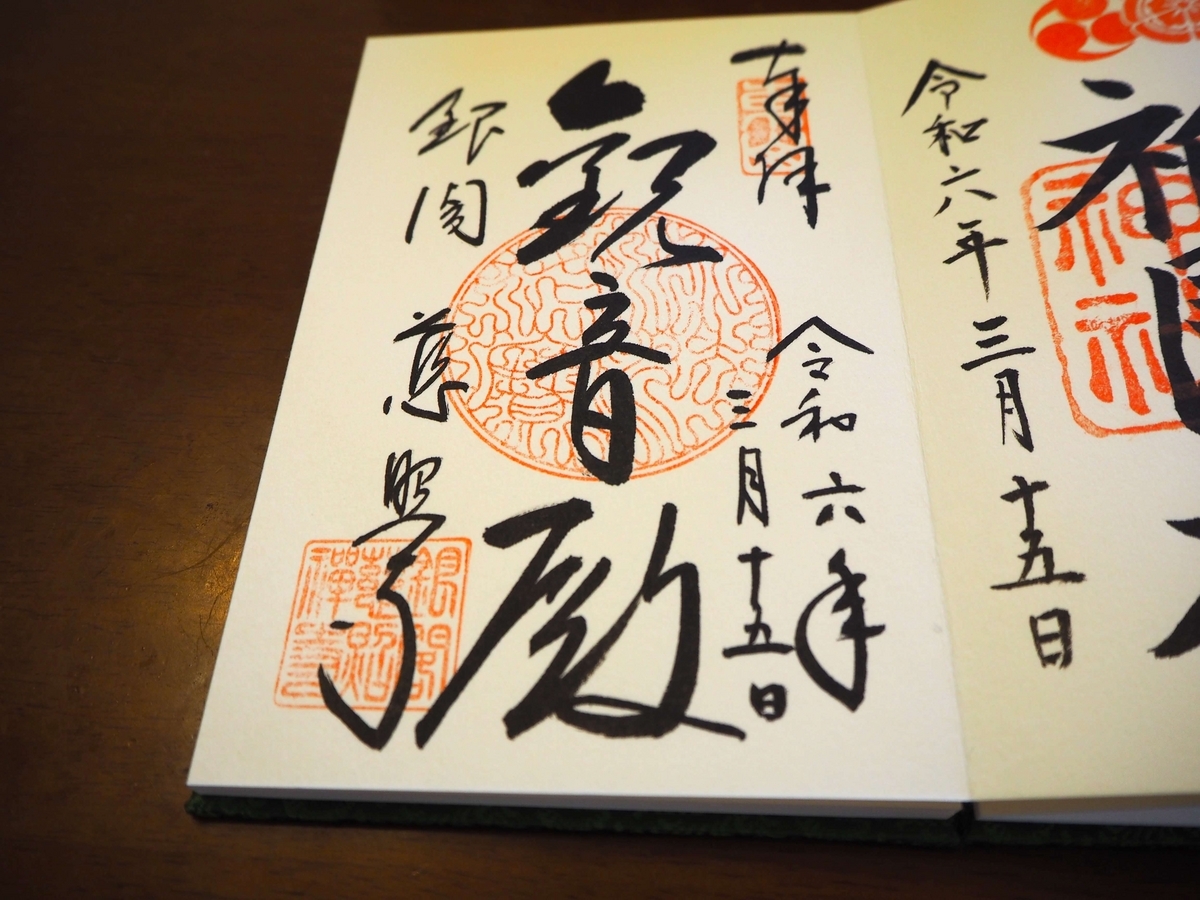 神社
令和六年三月十五日
奉拝
令和六年
三月十五日
観音殿
銀閣慈照寺
銀閣
慈照
禪寺